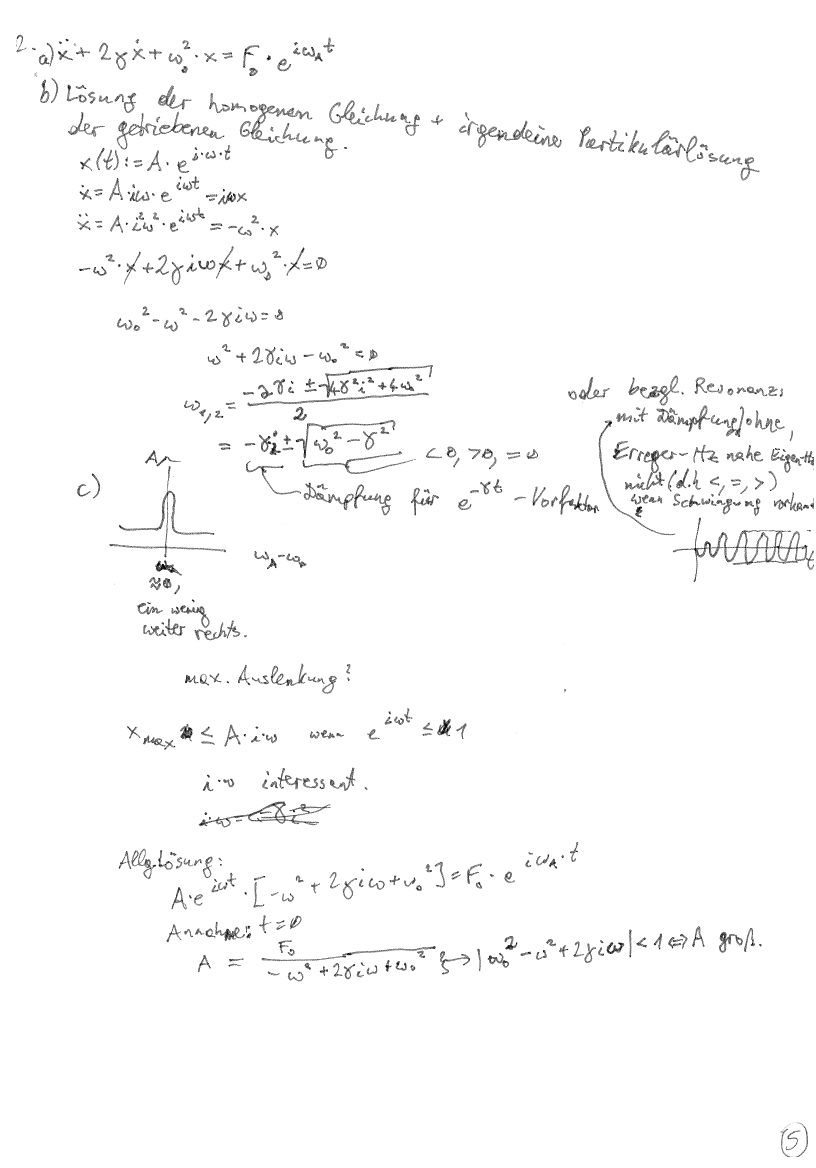 2. a) ẍ + 2γẋ + ω₀²·x = F₀·e^{iω_A t}
b) Lösung der homogenen Gleichung + irgendeine Partikulärlösung
der getriebenen Gleichung.
x(t) := A·e^{i·ω·t}
ẋ = A·iω·e^{iωt} = iωx
ẍ = A·i²ω²·e^{iωt} = -ω²·x
-ω²·x + 2γiωx + ω₀²·x = 0
ω₀² - ω² - 2γiω = 0
ω² + 2γiω - ω₀² = 0
ω₁,₂ = (-2γi ± √(4γ²i² + 4ω₀²))/2
= -γi ± √(ω₀² - γ²) < 0, > 0, = 0
Dämpfung für e^{-γt} - Vorfaktor
oder bezgl. Resonanz:
mit Dämpfung/ohne,
Erreger-Hz nahe Eigen-Hz
nicht (d.h <, =, >)
wenn Schwingung
c)
A
ω_A - ω₀
≈0,
ein wenig
weiter rechts.
max. Auslenkung?
x_max ≤ A·i·ω wenn e^{iωt} ≤ 1
i·ω interessant.
Allg. Lösung:
A·e^{iωt}·[-ω² + 2γiω + ω₀²] = F₀·e^{iω_A·t}
Annahme: t = 0
A = F₀/(-ω² + 2γiω + ω₀²) → |ω₀² - ω² + 2γiω| < 1 ⇔ A groß.
5